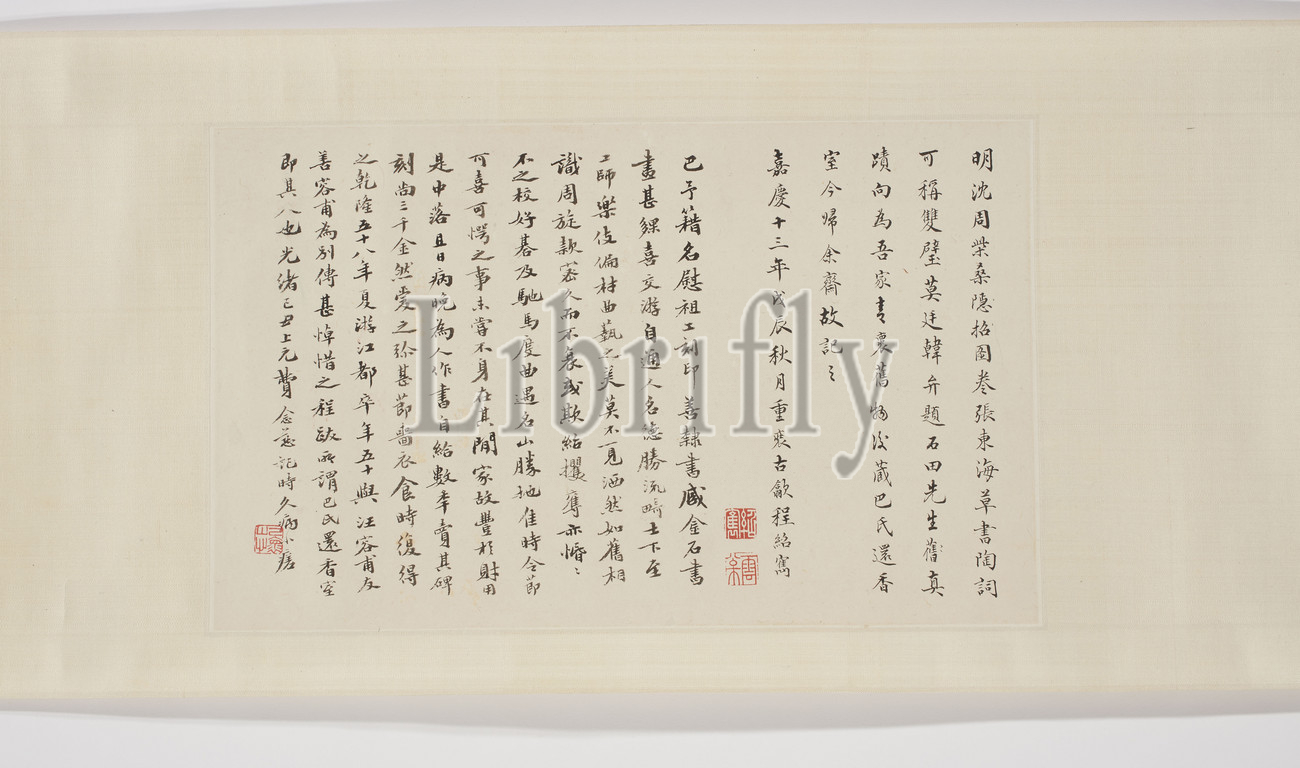 明沈周柴桑隱招圖卷張東海草書陶詞
可稱雙璧莫廷韓弁題石田先生舊真
蹟向為吾家青裏舊物後藏巴氏還香
室今歸余齋故記之
嘉慶十三年戊辰秋月重裝古歙程紹寯
巴予籍名慰祖工刻印善隸書臧金石書
畫甚夥喜交游自通人名德勝流畸士下至
工師樂伎偏材曲藝之美莫不一見洒然如舊相
識周旋款密久而不衰或欺紿攫奪亦惛惛
不之校好碁及馳馬度曲遇名山勝地佳時令節
可喜可愕之事未嘗不身在其間家故豐於財用
是中落且日病晚為人作書自給數年賣其碑
刻尚三千金然愛之彌甚節嗇衣食時復得
之乾隆五十八年夏游江都卒年五十與汪容甫友
善容甫為別傳甚悼惜之程跋所謂巴氏還香室
即其人也光緒己丑上元費念慈記時久病小痊
Librifly